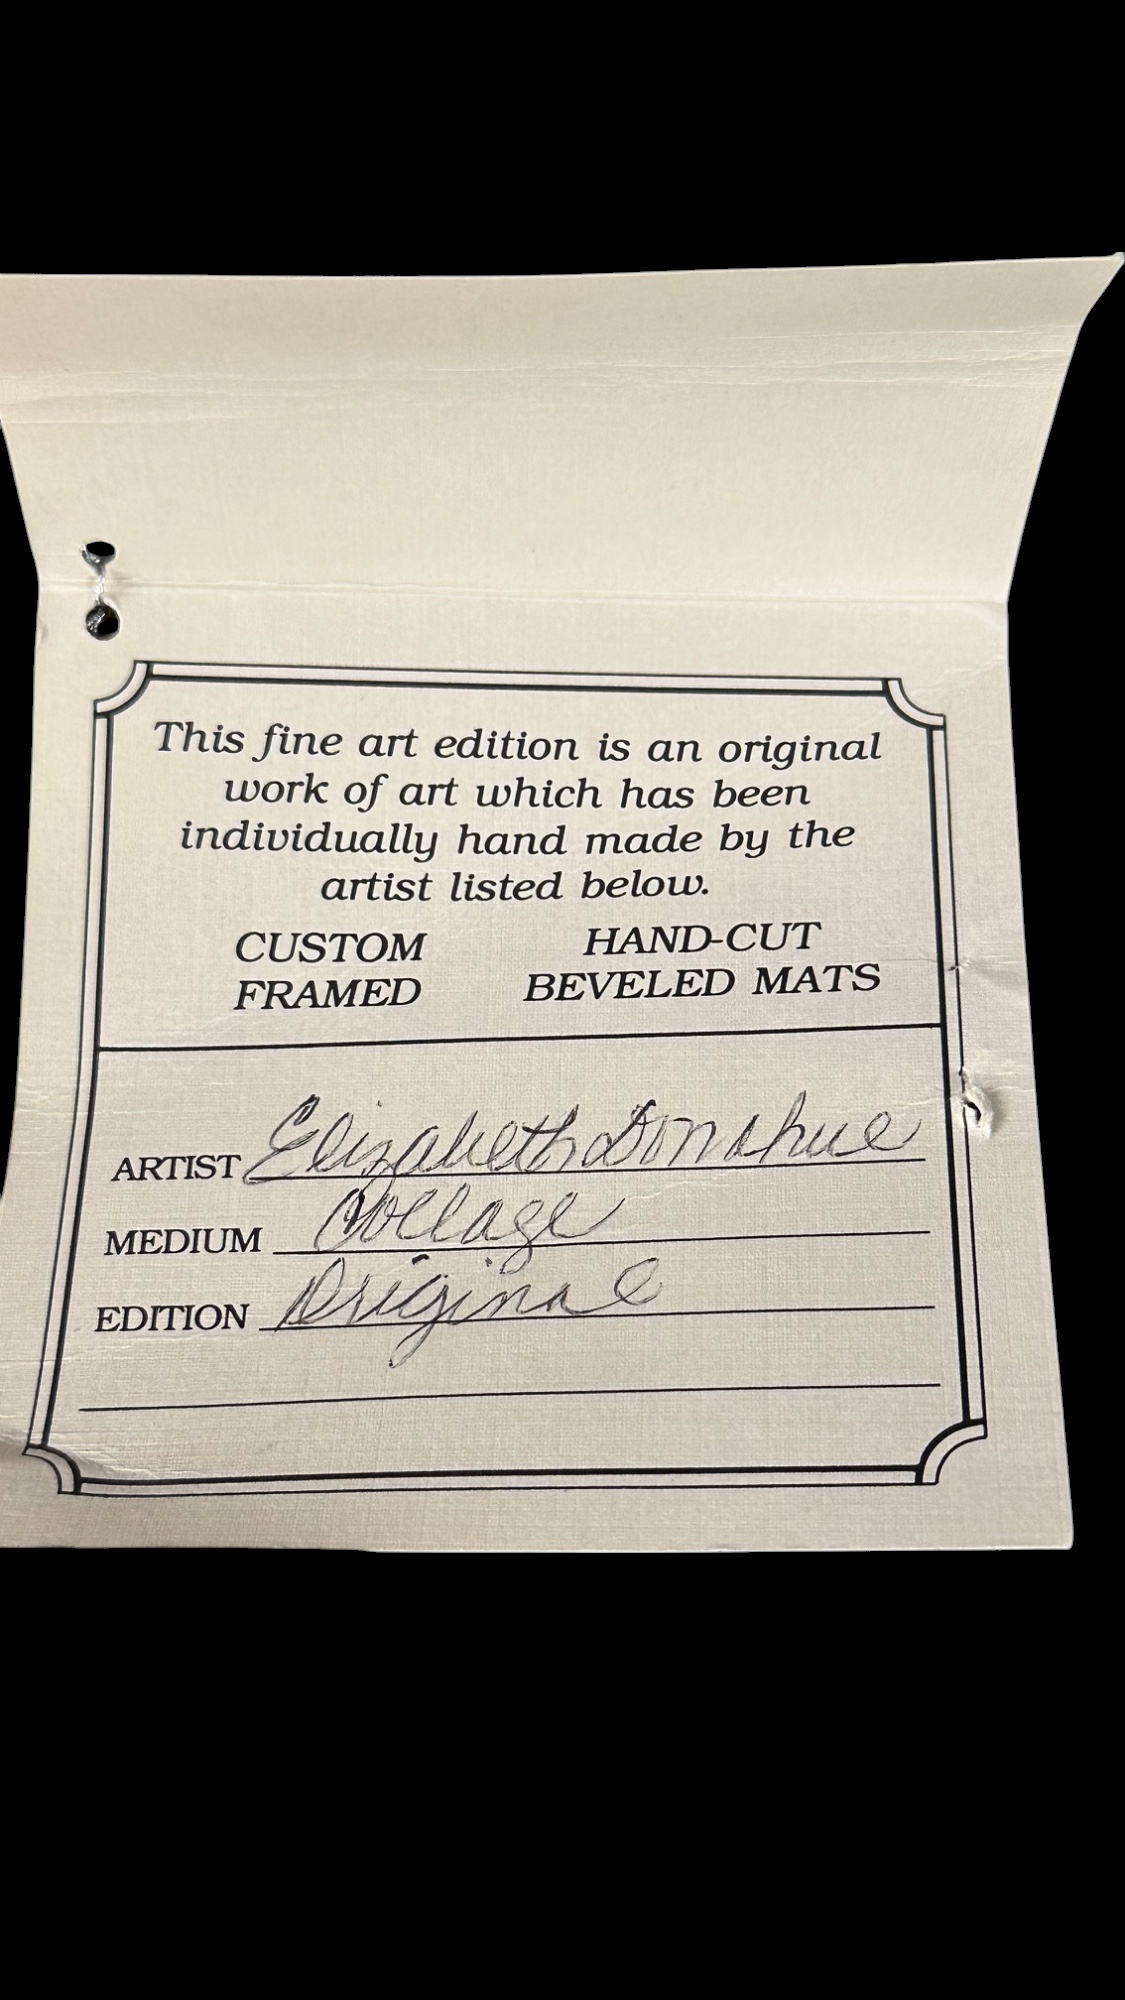 This fine art edition is an original
work of art which has been
individually hand made by the
artist listed below.
CUSTOM FRAMED
HAND-CUT BEVELED MATS
ARTIST Elizabeth Donahue
MEDIUM Collage
EDITION Original